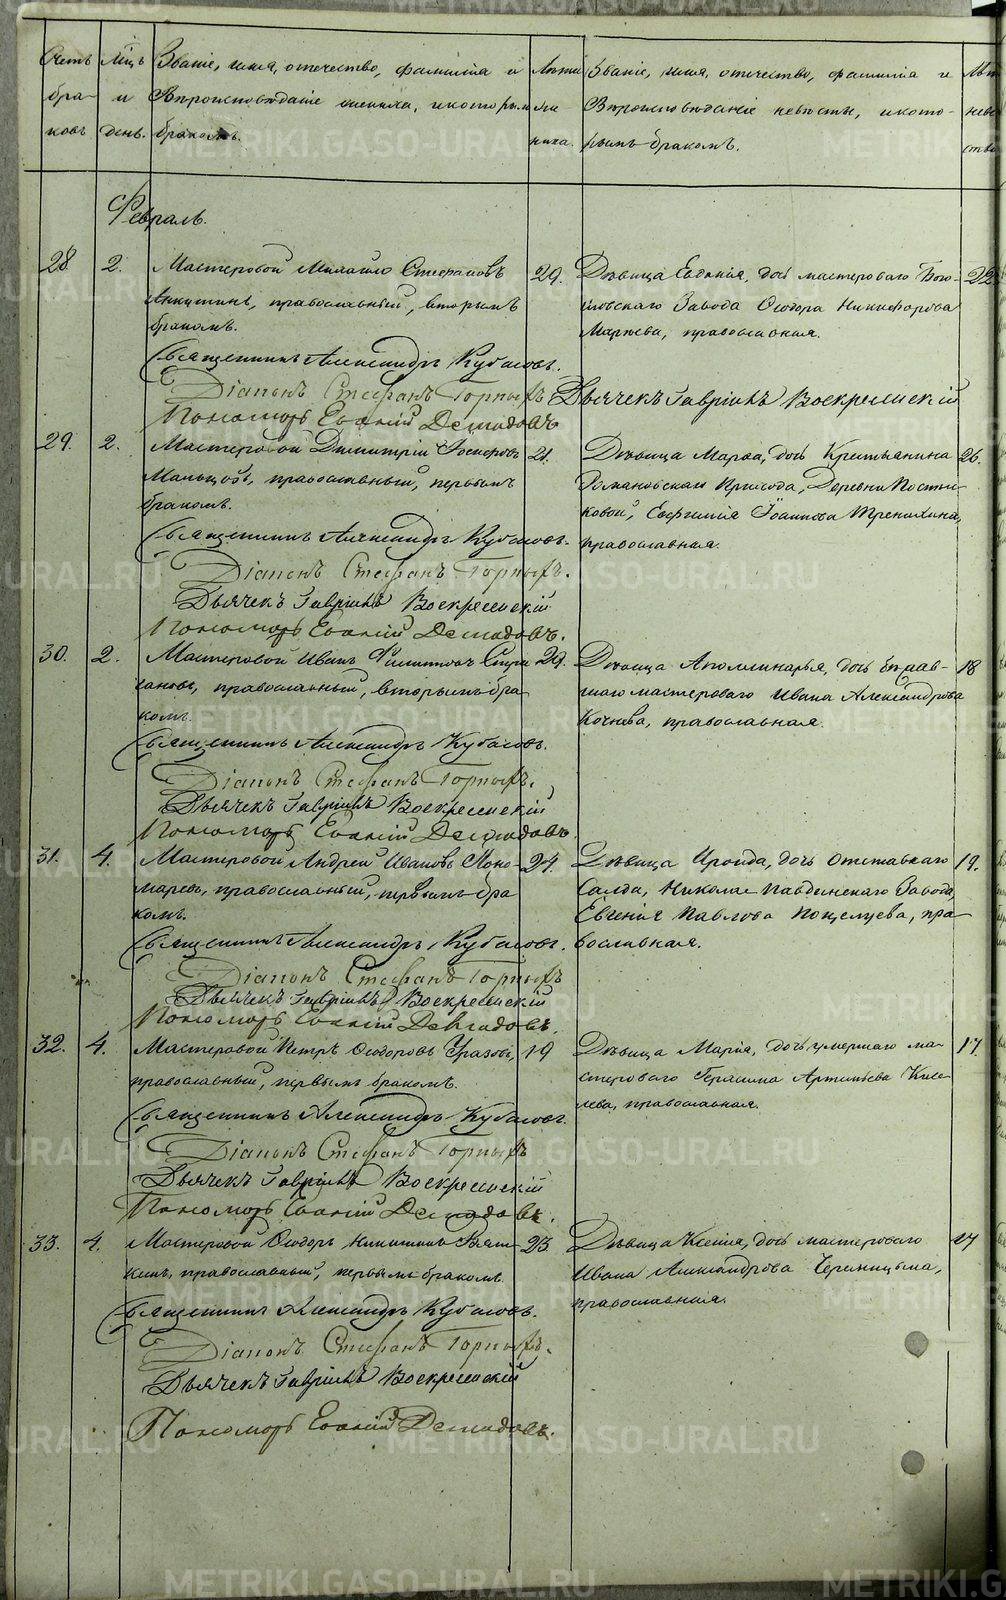 Счетъ браковъ
Мцъ и день.
Званіе, имя, отчество, фамилія и
Вѣроисповѣданіе жениха, и которымъ
бракомъ.
Лѣта жениха.
Званіе, имя, отчество, фамилія и
Вѣроисповѣданіе невѣсты, и кото-
рымъ бракомъ.
Февраль.
28. 2. Мастеровой Михаило Стефановъ
православный, вторымъ
бракомъ.
29.
Дѣвица Евдокія, дочь мастероваго Бого-
словскаго Завода Ѳеодора Никифорова
православная.
22
Священникъ Александръ Кубасовъ.
Діаконъ Стефанъ Горныхъ
Дьячекъ Гавріилъ Воскресенскій
Пономарь Евѳимій Демидовъ
29. 2. Мастеровой Димитрій
православный, первымъ
бракомъ.
21.
Дѣвица Марѳа, дочь Крестьянина
Романовскаго Прихода, Деревни Постни-
ковой, Іоаннова
православная.
26.
Священникъ Александръ Кубасовъ.
Діаконъ Стефанъ Горныхъ.
Дьячекъ Гавріилъ Воскресенскій
Пономарь Евѳимій Демидовъ.
30. 2. Мастеровой Иванъ Филипповъ
православный, вторымъ бра-
комъ.
29.
Дѣвица Аполлинарья, дочь
мастероваго Ивана Александрова
православная.
18
Священникъ Александръ Кубасовъ.
Діаконъ Стефанъ Горныхъ.
Дьячекъ Гавріилъ Воскресенскій
Пономарь Евѳимій Демидовъ.
31. 4. Мастеровой Андрей Ивановъ Поно-
маревъ, православный, первымъ бра-
комъ.
24.
Дѣвица Ираида, дочь отставнаго
Николае Павдинскаго Завода,
Евгенія Павлова пра-
вославная.
19.
Священникъ Александръ Кубасовъ.
Діаконъ Стефанъ Горныхъ
Дьячекъ Гавріилъ Воскресенскій
Пономарь Евѳимій Демидовъ.
32. 4. Мастеровой Петръ Ѳеодоровъ
православный, первымъ бракомъ.
19
Дѣвица Марія, дочь умершаго ма-
стероваго Герасима Артемьева Кисе-
лева, православная.
17.
Священникъ Александръ Кубасовъ.
Діаконъ Стефанъ Горныхъ
Дьячекъ Гавріилъ Воскресенскій
Пономарь Евѳимій Демидовъ.
33. 4. Мастеровой Ѳеодоръ Никитинъ
православный, первымъ бракомъ.
23
Дѣвица Ксенія, дочь мастероваго
Ивана Александрова
православная.
Священникъ Александръ Кубасовъ.
Діаконъ Стефанъ Горныхъ.
Дьячекъ Гавріилъ Воскресенскій
Пономарь Евѳимій Демидовъ.
METRIKI.GASO-URAL.RU